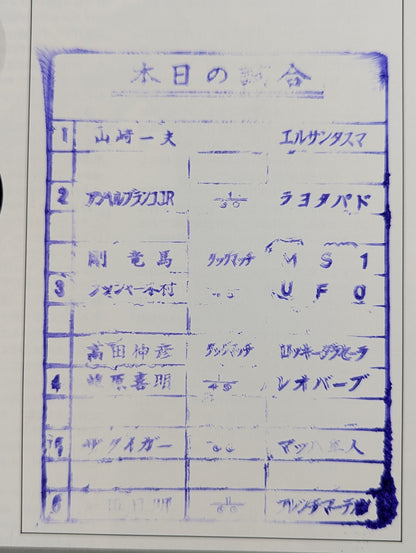 本日の試合
1 山崎一夫 エルサンタスマ
2 アンヘルブランコJR 1/30 ラヨタパド
剛竜馬 タッグマッチ MS1
3 ラッシャー木村 45 UFO
高田伸彦 タッグマッチ ロッキー
4 藤原喜明 1/45 レオバーブ
ザタイガー マッハ隼人
6 フレンチマーテル